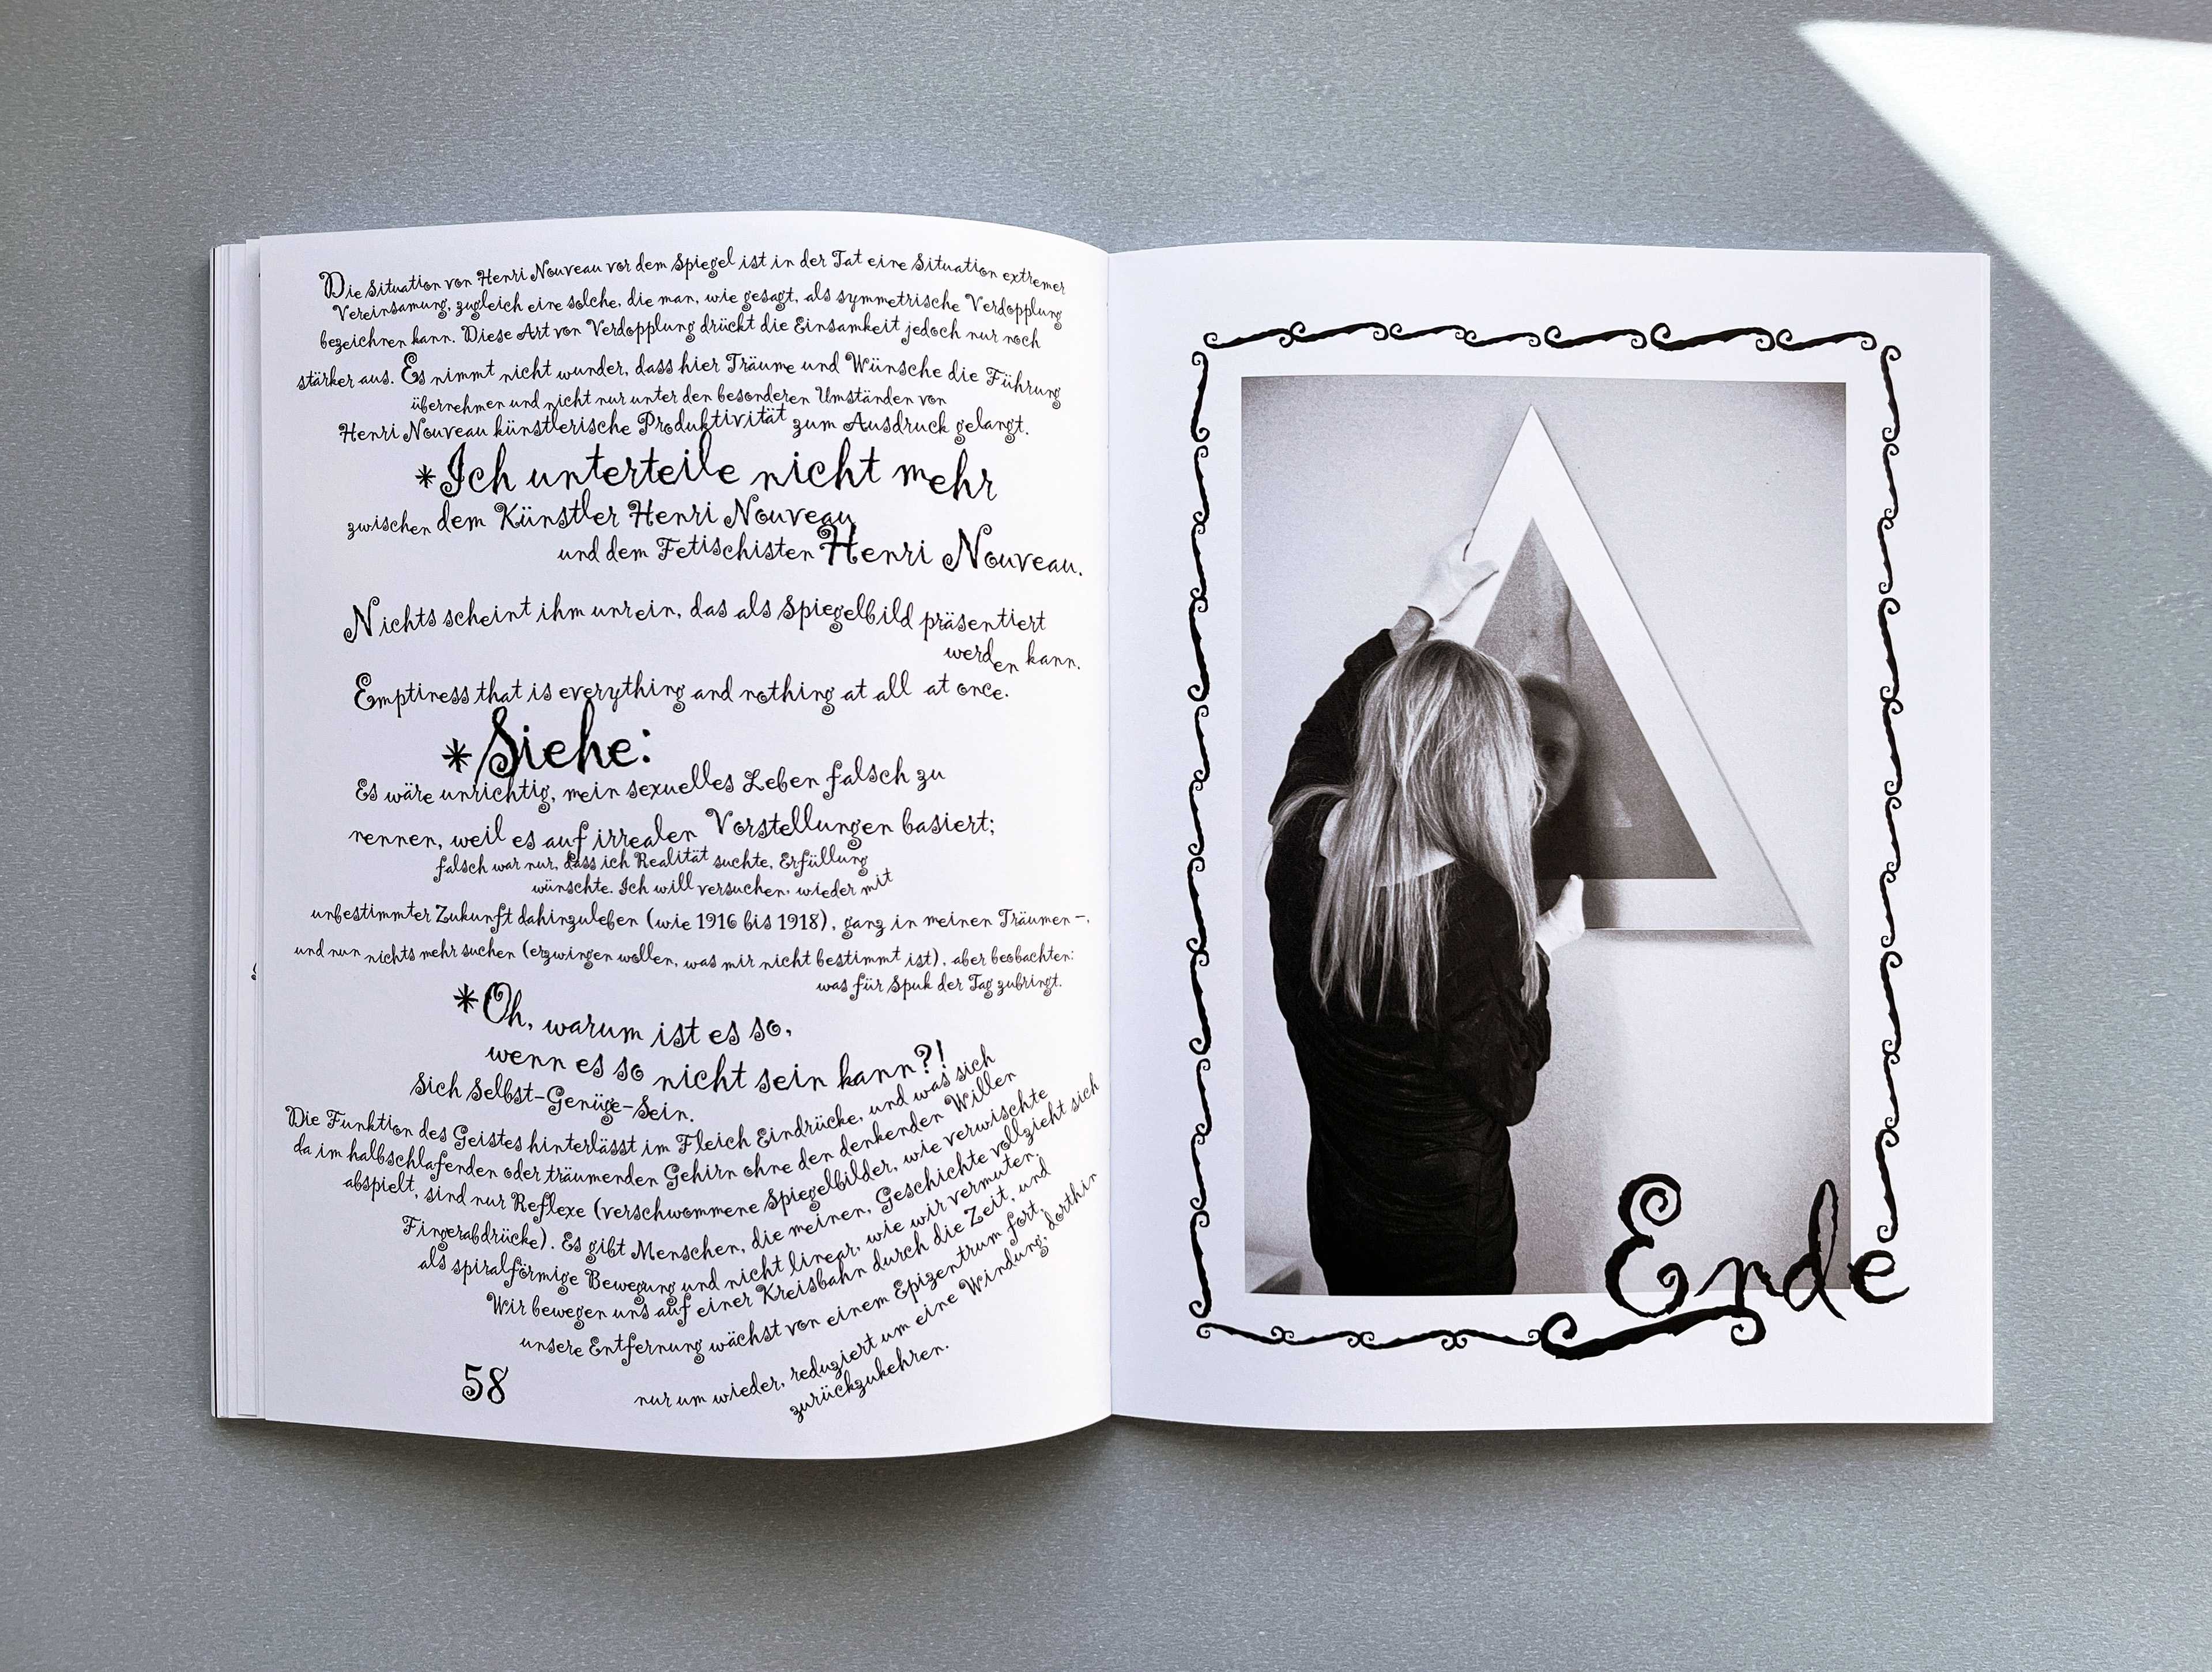 Die Situation von Henri Nouveau vor dem Spiegel ist in der Tat eine Situation extremer
Vereinsamung, zugleich eine solche, die man, wie gesagt, als symmetrische Verdopplung
bezeichnen kann. Diese Art von Verdopplung drückt die Einsamkeit jedoch nur noch
stärker aus. Es nimmt nicht wunder, dass hier Träume und Wünsche die Führung
übernehmen und nicht nur unter den besonderen Umständen von
Henri Nouveau künstlerische Produktivität zum Ausdruck gelangt.
*Ich unterteile nicht mehr
zwischen dem Künstler Henri Nouveau
und dem Fetischisten Henri Nouveau.
Nichts scheint ihm unrein, das als Spiegelbild präsentiert
werden kann.
Emptiness that is everything and nothing at all at once.
*Siehe:
Es wäre unrichtig, mein sexuelles Leben falsch zu
nennen, weil es auf irrealen Vorstellungen basiert;
falsch war nur, dass ich Realität suchte, Erfüllung
wünschte. Ich will versuchen, wieder mit
unbestimmter Zukunft dahinzuleben (wie 1916 bis 1918), ganz in meinen Träumen –,
und nun nichts mehr suchen (erzwingen wollen, was mir nicht bestimmt ist), aber beobachten:
was für Spuk der Tag zubringt.
*Oh, warum ist es so,
wenn es so nicht sein kann?!
Sich Selbst-Genüge-Sein.
Die Funktion des Geistes hinterlässt im Fleich Eindrücke, und was sich
da im halbschlafenden oder träumenden Gehirn ohne den denkenden Willen
abspielt, sind nur Reflexe (verschwommene Spiegelbilder, wie verwischte
Fingerabdrücke). Es gibt Menschen, die meinen, Geschichte vollzieht sich
als spiralförmige Bewegung und nicht linear, wie wir vermuten.
Wir bewegen uns auf einer Kreisbahn durch die Zeit, und
unsere Entfernung wächst von einem Epizentrum fort,
nur um wieder, reduziert um eine Windung, dorthin
zurückzukehren.
58
Ende